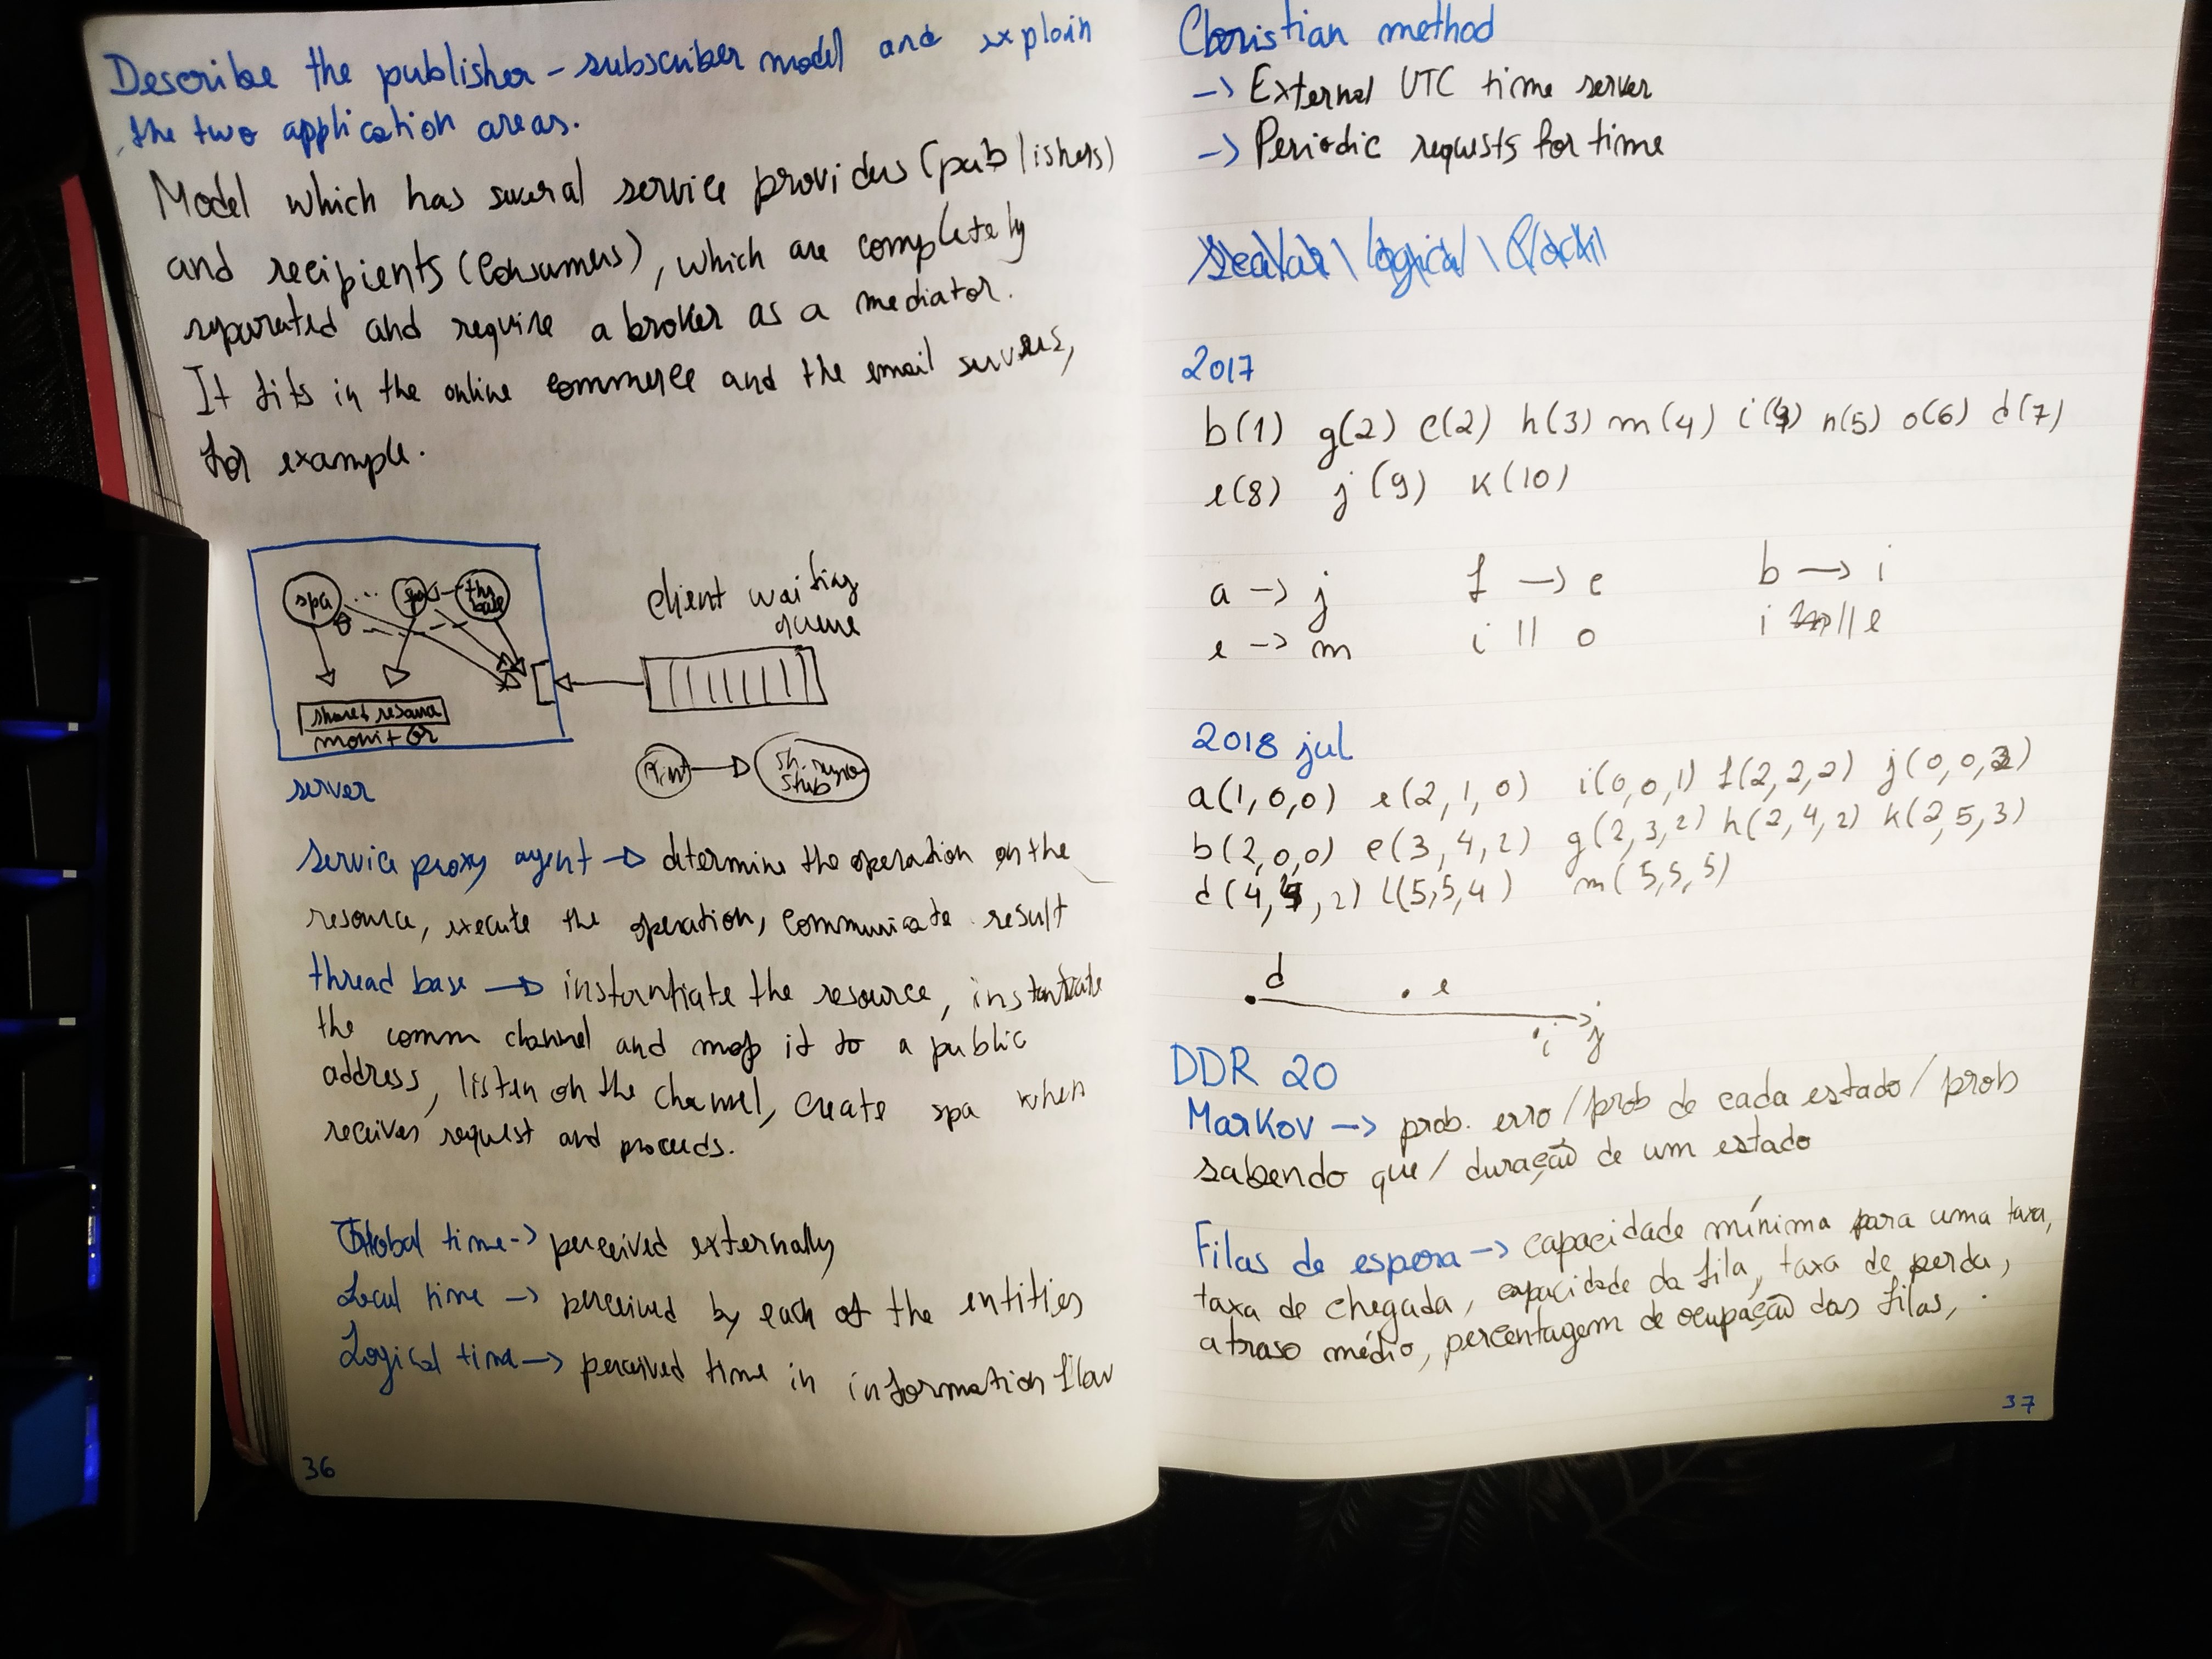 Describe the publisher - subscriber model and explain
the two application areas.
Model which has several service providers (publishers)
and recipients (consumers), which are completely
separated and require a broker as a mediator.
It fits in the online commerce and the email servers,
for example.
spa ... spa thr base
client waiting
queue
shared resource
monitor
client sh. reg stub
server
service proxy agent → determine the operation on the
resource, execute the operation, communicate result
thread base → instantiate the resource, instantiate
the comm channel and map it to a public
address, listen on the channel, create spa when
receives request and proceeds.
Global time -> perceived externally
Local time -> perceived by each of the entities
Logical time -> perceived time in information flow
36
Christian method
-> External UTC time server
-> Periodic requests for time
Scalar \ logical \ Clock
2017
b(1) g(2) c(2) h(3) m(4) i(4) n(5) o(6) d(7)
e(8) j(9) k(10)
a -> j f -> c b -> i
e -> m i || o i || e
2018 jul
a(1,0,0) e(2,1,0) i(0,0,1) f(2,2,2) j(0,0,2)
b(2,0,0) c(3,4,2) g(2,3,2) h(2,4,2) k(2,5,3)
d(4,4,2) l(5,5,4) m(5,5,5)
d
e
i j
DDR 20
Markov -> prob. erro / prob de cada estado / prob
sabendo que / duração de um estado
Filas de espera -> capacidade mínima para uma taxa,
taxa de chegada, capacidade da fila, taxa de perda,
atraso médio, percentagem de ocupação das filas,
37